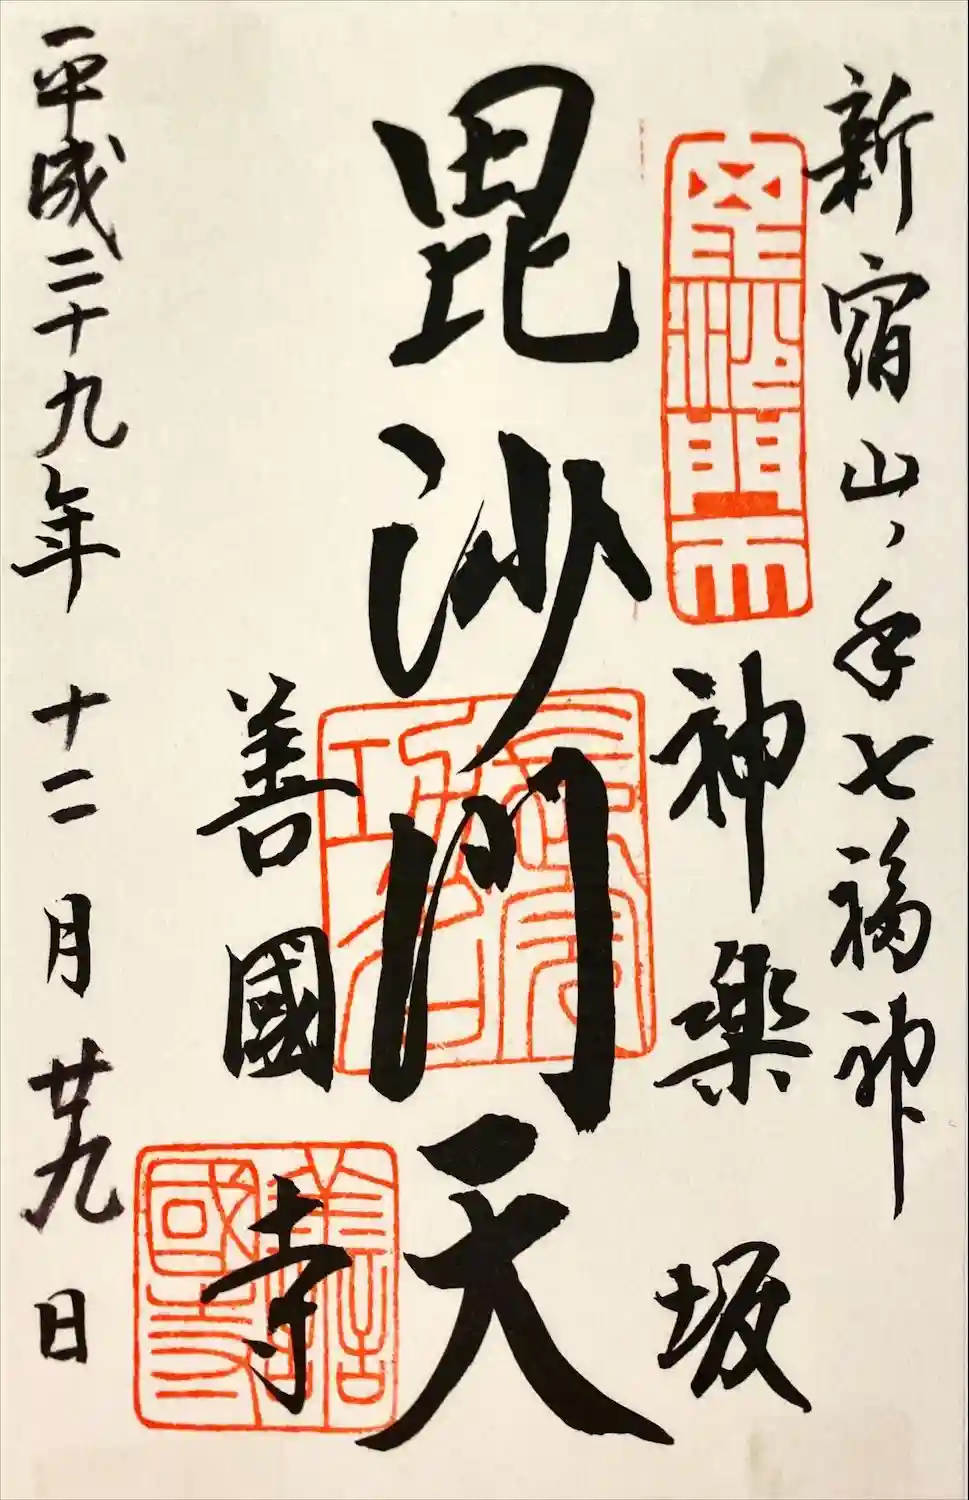 新宿山ノ手七福神
神楽坂
毘沙門天
善國寺
平成二十九年十二月廿九日